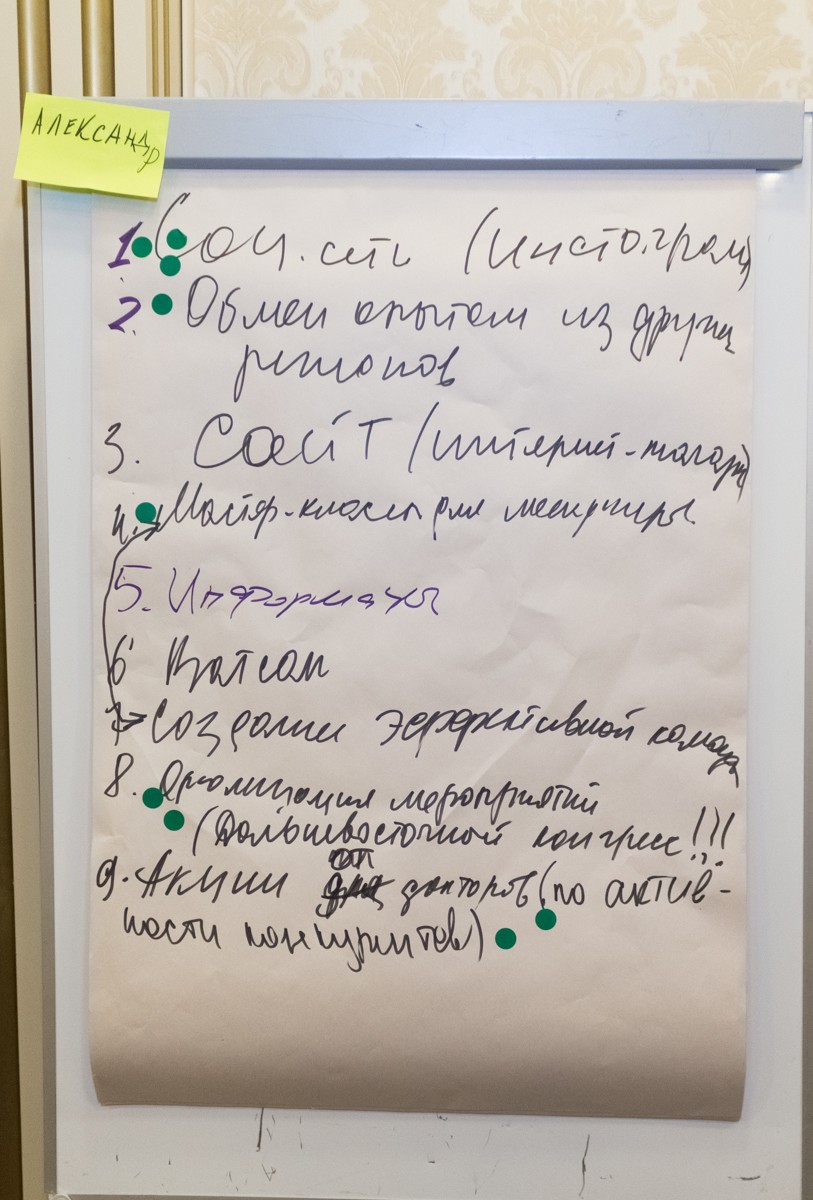 АЛЕКСАНДР
1. Соц. сети (инстограм)
2. Обмен опытом из других
регионов
3. Сайт (интернет-магаз)
4. Мастер-классы для менеджеры
5. Информаты
6 Ватсап
7 Создание эффективной команды
8. Организация мероприятий
(Дальневосточной конгресс!!!
от
9. Акции докторов (по актив-
ности конкурентов)